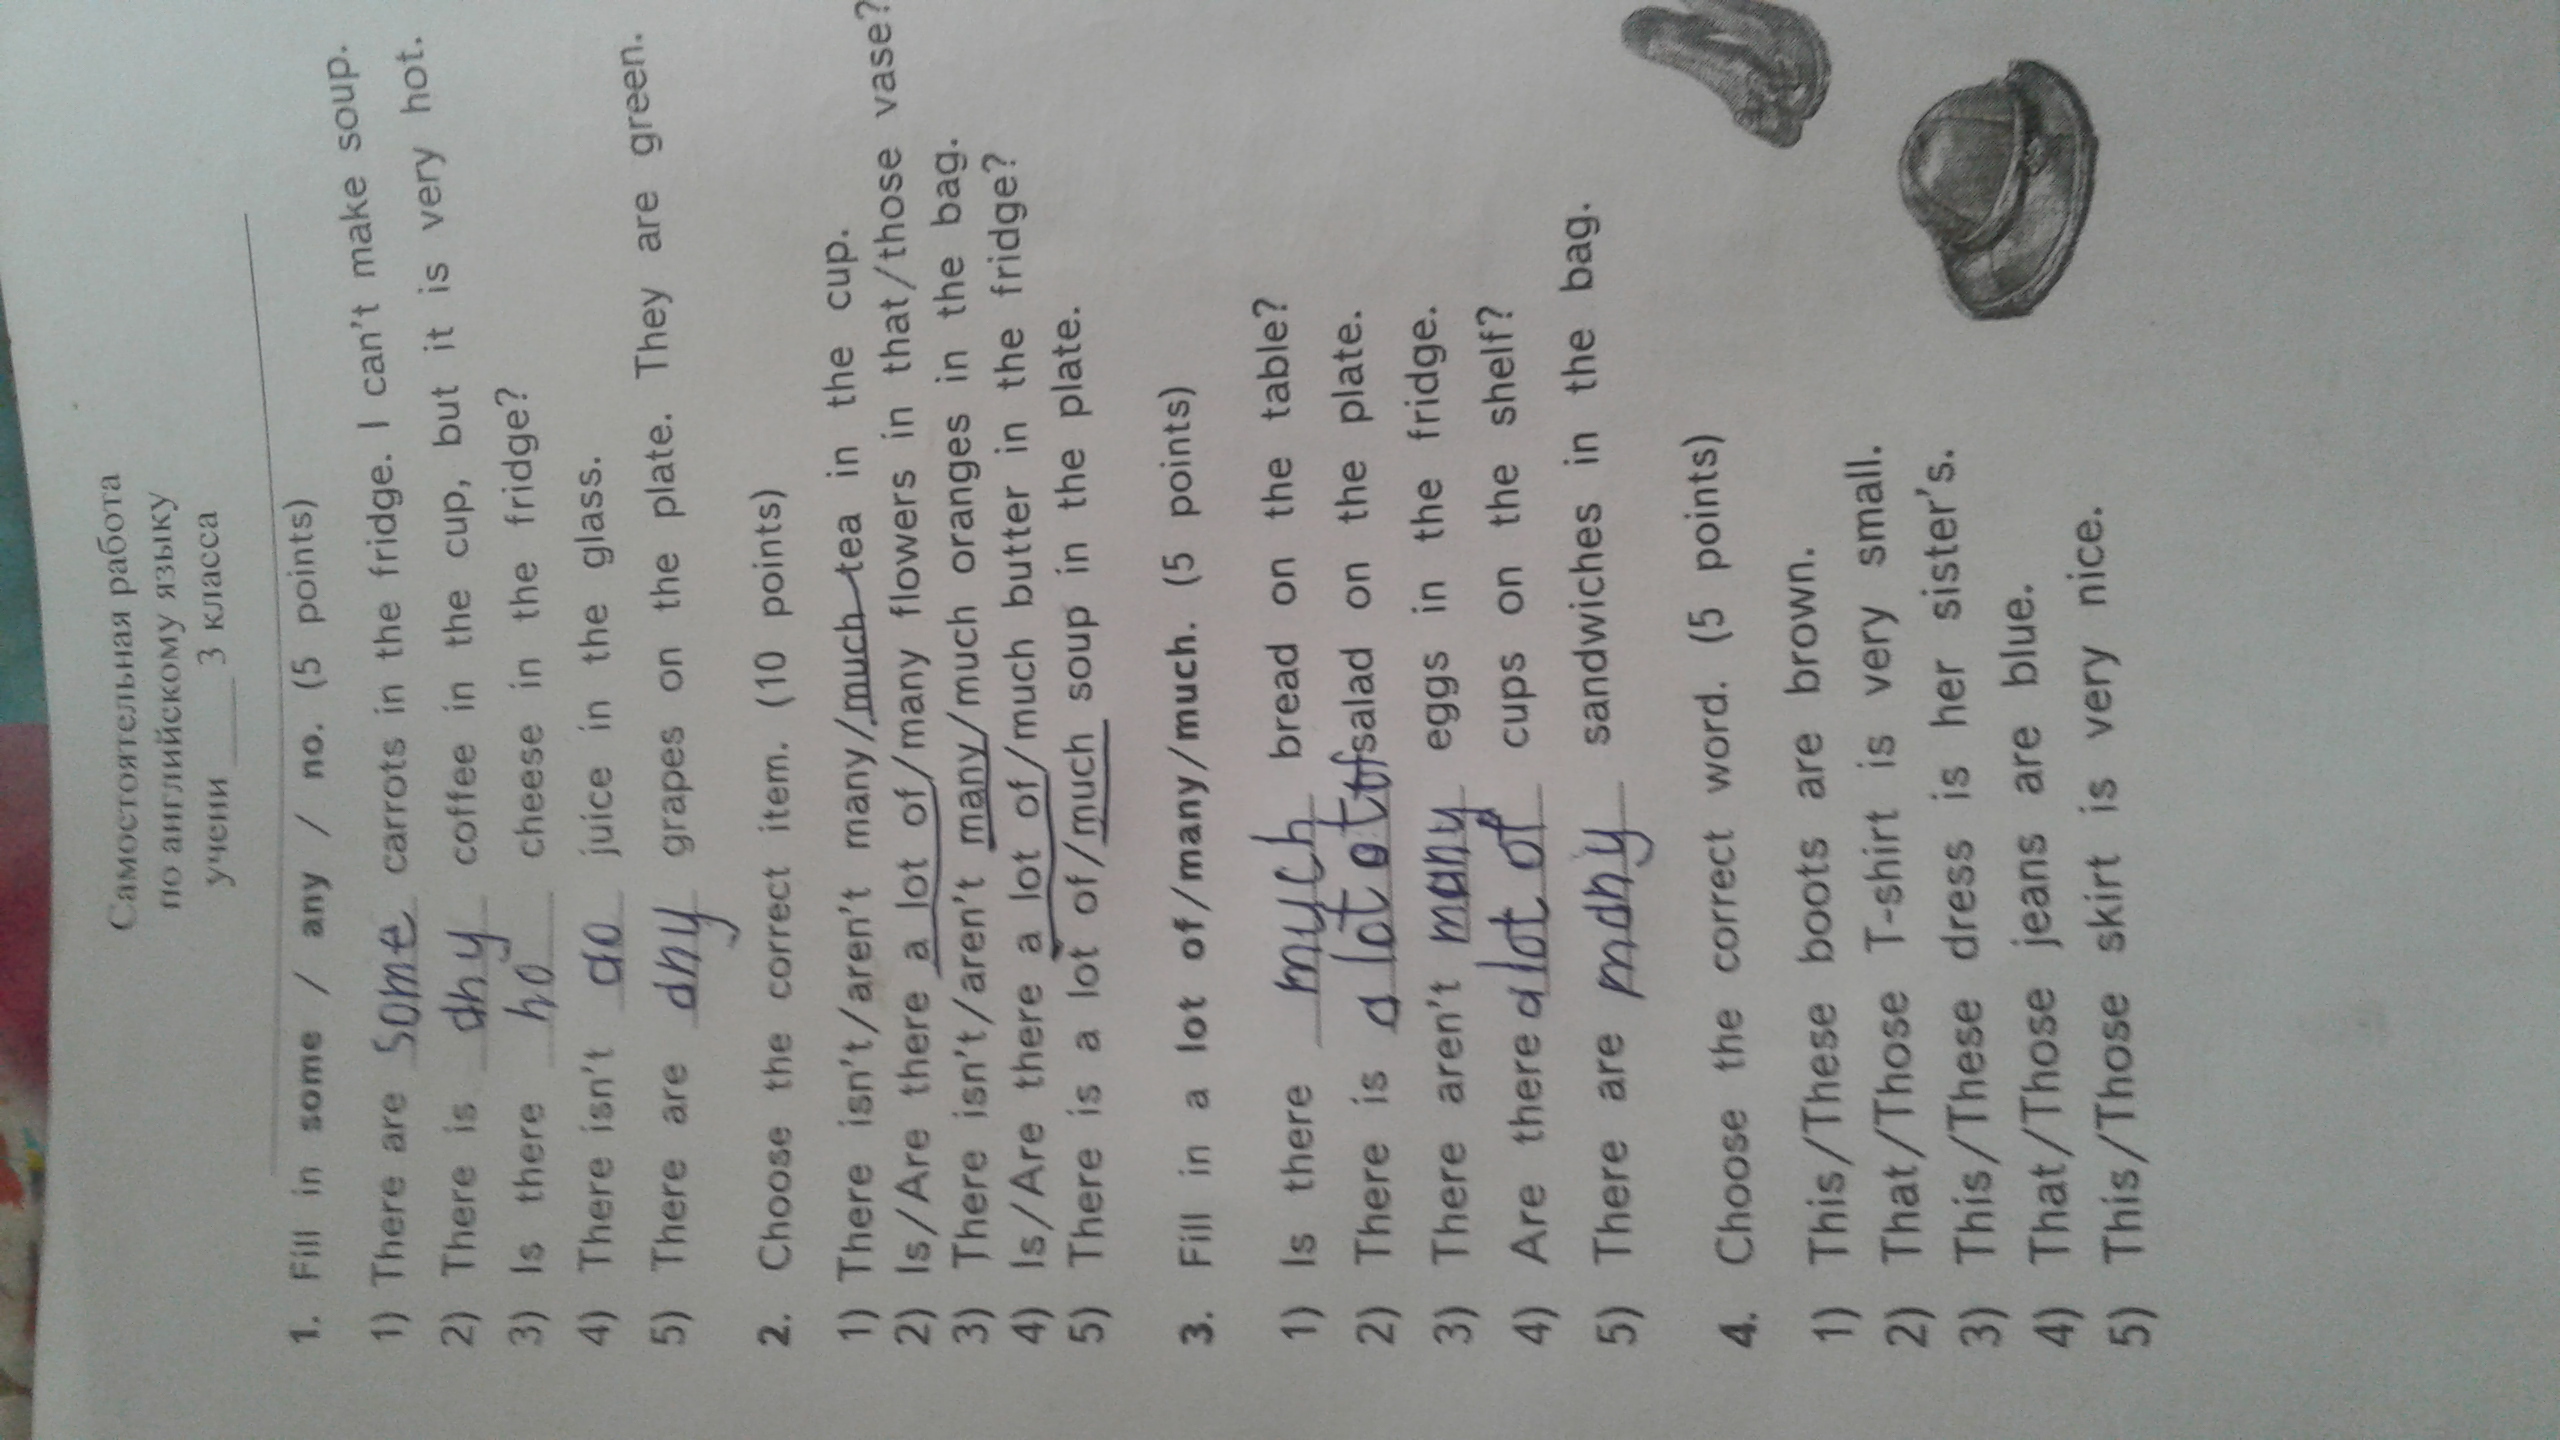 Самостоятельная работа
по английскому языку
учени ____ 3 класса
1. Fill in some / any / no. (5 points)
1) There are some carrots in the fridge. I can't make soup.
2) There is any coffee in the cup, but it is very hot.
3) Is there no cheese in the fridge?
4) There isn't juice in the glass.
5) There are any grapes on the plate. They are green.
2. Choose the correct item. (10 points)
1) There isn't/aren't many/much tea in the cup.
2) Is/Are there a lot of/many flowers in that/those vase?
3) There isn't/aren't many/much oranges in the bag.
4) Is/Are there a lot of/much butter in the fridge?
5) There is a lot of/much soup in the plate.
3. Fill in a lot of/many/much. (5 points)
1) Is there much bread on the table?
2) There is a lot of salad on the plate.
3) There aren't many eggs in the fridge.
4) Are there a lot of cups on the shelf?
5) There are many sandwiches in the bag.
4. Choose the correct word. (5 points)
1) This/These boots are brown.
2) That/Those T-shirt is very small.
3) This/These dress is her sister's.
4) That/Those jeans are blue.
5) This/Those skirt is very nice.